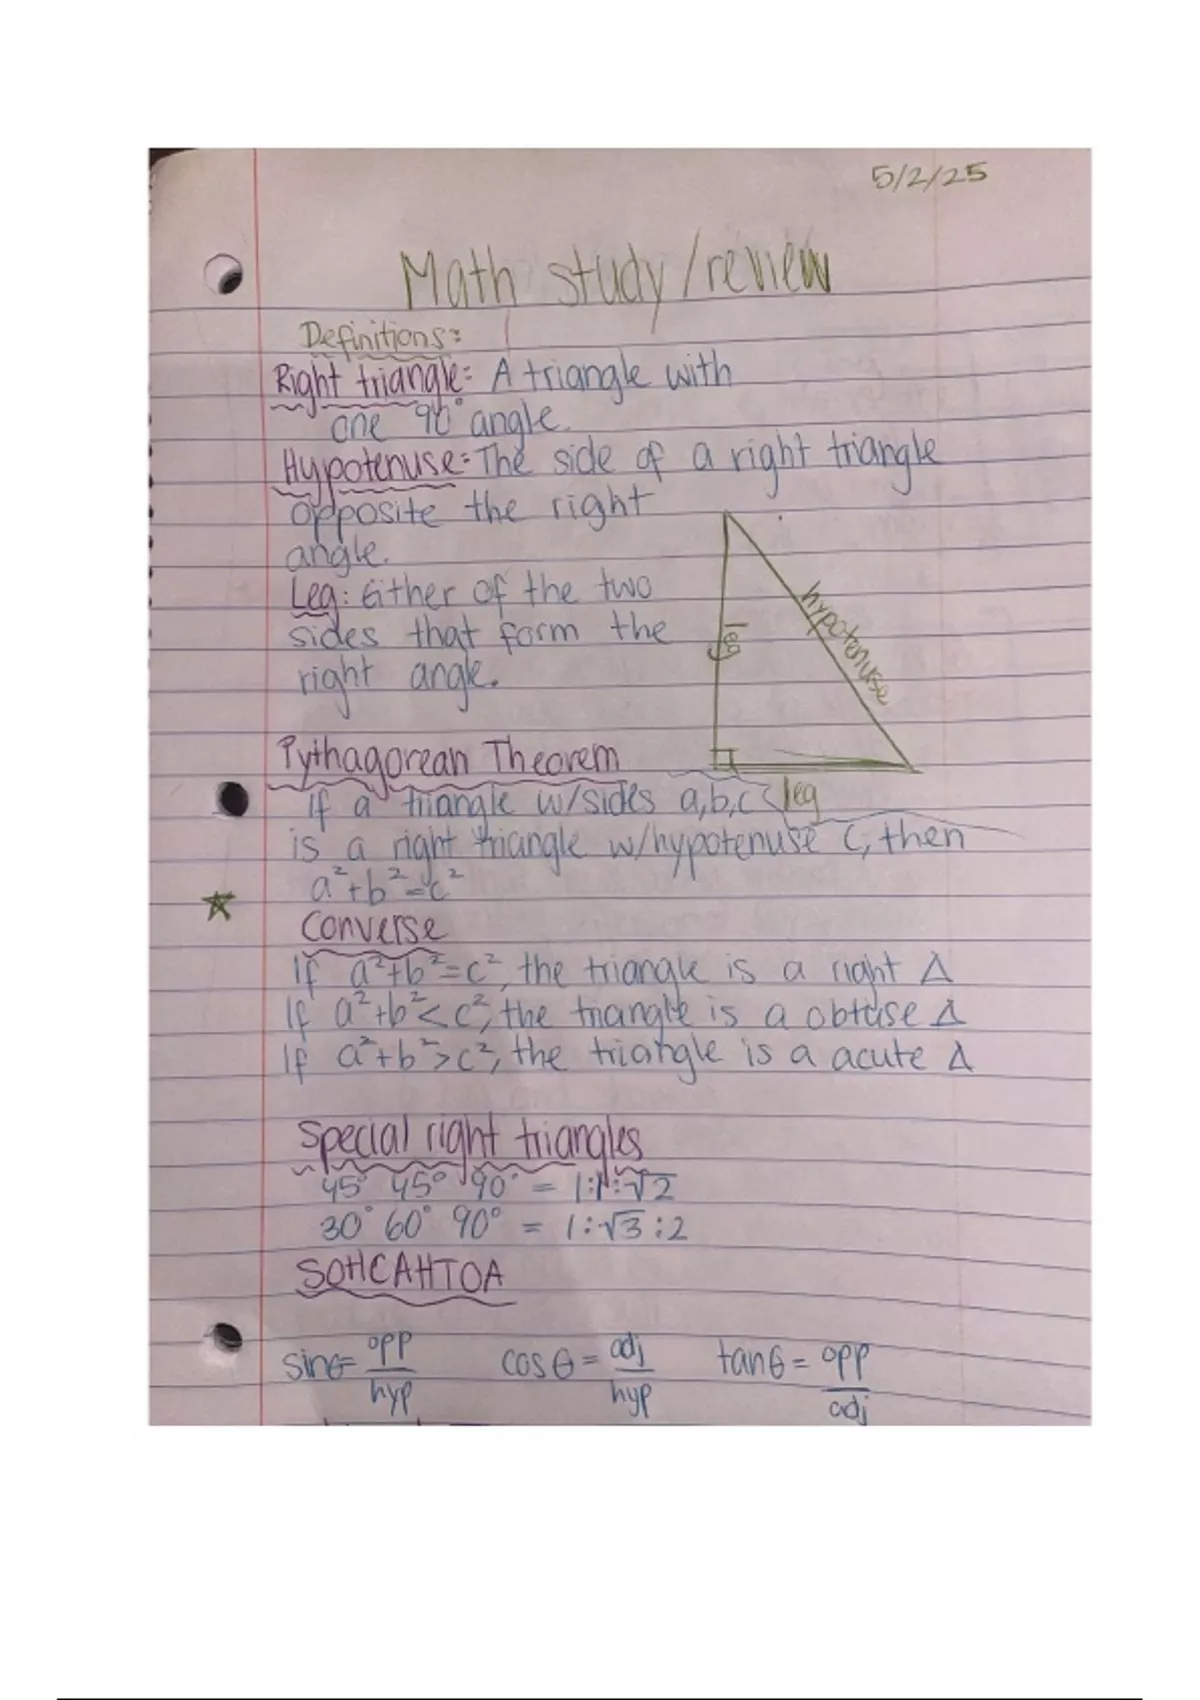 5/2/25
Math study/review
Definitions:
Right triangle: A triangle with
one 90° angle.
Hypotenuse: The side of a right triangle
opposite the right
angle.
Leg: Either of the two
sides that form the
right angle.
leg
hypotenuse
leg
Pythagorean Theorem
If a triangle w/sides a,b,c
is a right triangle w/hypotenuse c, then
a²+b²=c²
Converse
If a²+b²=c², the triangle is a right Δ
If a²+b²<c², the triangle is a obtuse Δ
If a²+b²>c², the triangle is a acute Δ
Special right triangles
45° 45° 90° = 1:1:√2
30° 60° 90° = 1:√3:2
SOHCAHTOA
sinθ= opp/hyp cosθ= adj/hyp tanθ= opp/adj